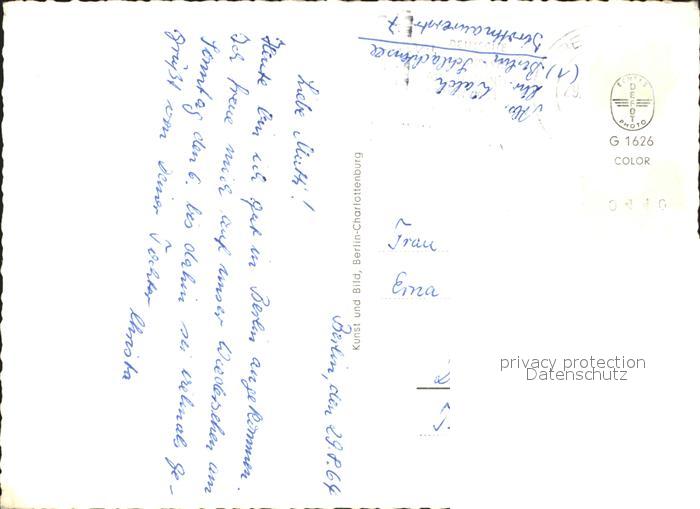 Berlin, den 29.8.64
Liebe Mutti!
Heute bin ich gut in Berlin angekommen.
Ich freue mich auf unser Wiedersehen am
Sonntag den 6. bis dahin sei vielmals ge-
grüßt von Deiner Tochter Christa
Kunst und Bild, Berlin-Charlottenburg
Abs. Chr.
(1) Berlin-Schlachtensee
ECHTES
DEFOT
PHOTO
G 1626
COLOR
Frau
privacy protection
Datenschutz